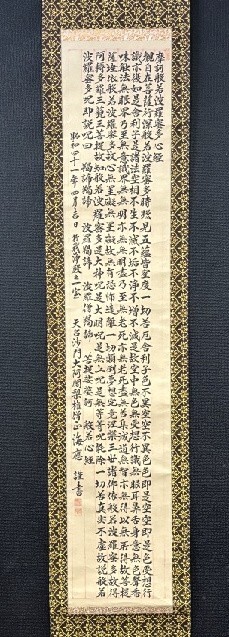 摩訶般若波羅蜜多心經
觀自在菩薩行深般若波羅蜜多時照見五蘊皆空度一切苦厄舎利子色不異空空不異色色即是空空即是色受想行
識亦復如是舎利子是諸法空相不生不滅不垢不浄不増不減是故空中無色無受想行識無眼耳鼻舌身意無色聲香
味触法無眼界乃至無意識界無無明亦無無明盡乃至無老死亦無老死盡無苦集滅道無智亦無得以無所得故菩提
薩埵依般若波羅蜜多故心無罣礙無罣礙故無有恐怖遠離一切顛倒夢想究竟涅槃三世諸佛依般若波羅蜜多故得
阿耨多羅三藐三菩提故知般若波羅蜜多是大神呪是大明呪是無上呪是無等等呪能除一切苦真実不虚故説般若
波羅蜜多呪即説呪曰 羯諦羯諦 波羅羯諦 波羅僧羯諦 菩提娑婆訶 般若心経
昭和四十一年四月吉日 於 之室 天台沙門大阿闍梨権僧正 海應 謹書